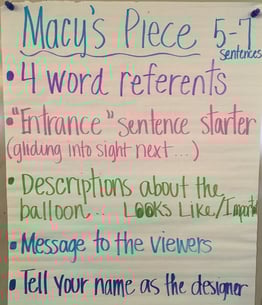 Macy's Piece 5-7
sentences
• 4 word referents
• "Entrance" sentence starter
(gliding into sight next...)
• Descriptions about the
balloon... Looks Like/
• Message to the viewers
• Tell your name as the designer